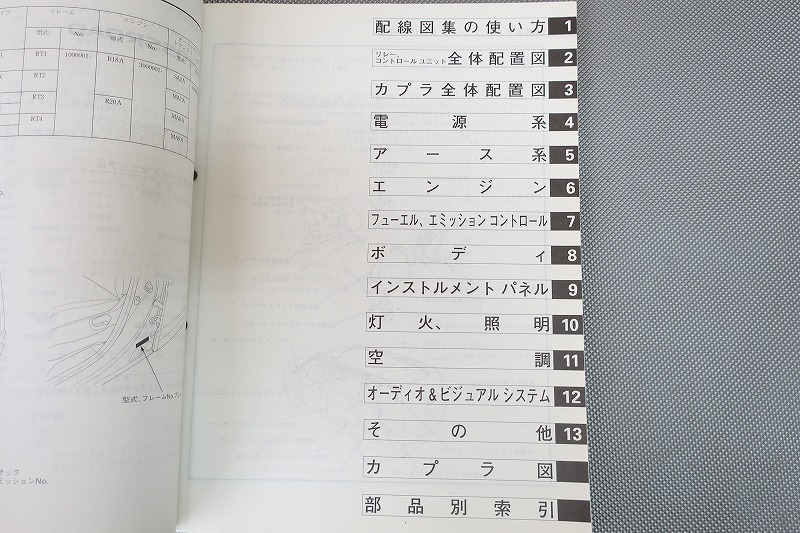 イプ
フレーム
エンジン
型式
No.
型式
No.
型式
RT1
1000001-
R18A
3000001-
RT2
RT3
R20A
RT4
No.
型式、フレームNo.
チック
ミッションNo.
配線図集の使い方 1
リレー、
コントロール ユニット 全体配置図 2
カプラ全体配置図 3
電源系 4
アース系 5
エンジン 6
フューエル、エミッション コントロール 7
ボディ 8
インストルメント パネル 9
灯火、照明 10
空調 11
オーディオ&ビジュアル システム 12
その他 13
カプラ図
部品別索引